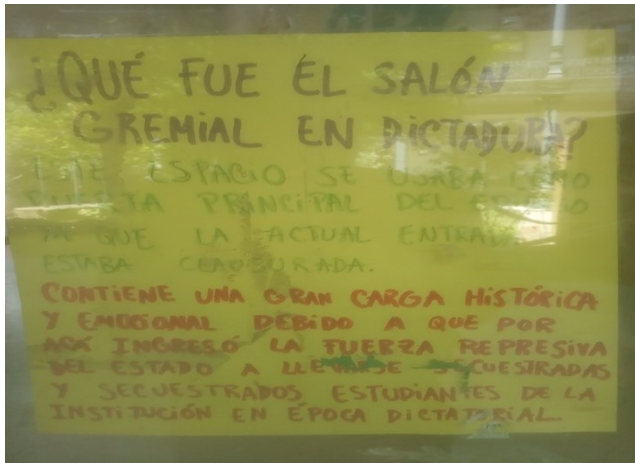 ¿QUÉ FUE EL SALÓN
GREMIAL EN DICTADURA?
ESTE ESPACIO SE USABA COMO
PUERTA PRINCIPAL DEL
YA QUE LA ACTUAL ENTRADA
ESTABA CLAUSURADA.
CONTIENE UNA GRAN CARGA HISTÓRICA
Y EMOCIONAL DEBIDO A QUE POR
ACÁ INGRESÓ LA FUERZA REPRESIVA
DEL ESTADO A LLEVARSE SECUESTRADAS
Y SECUESTRADOS ESTUDIANTES DE LA
INSTITUCIÓN EN ÉPOCA DICTATORIAL.